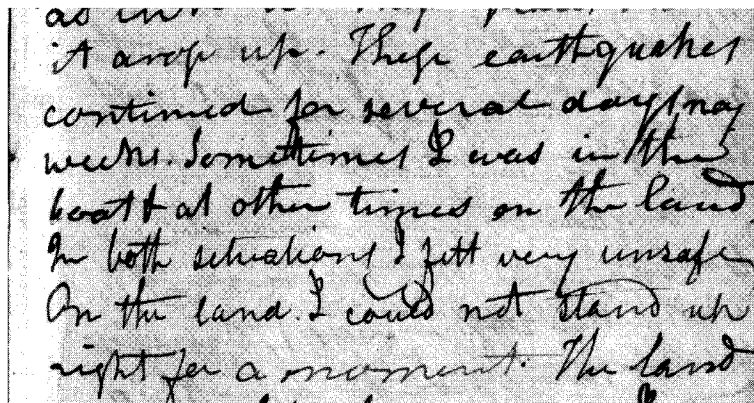 as in
it arose up. These earthquakes
continued for several days, nay
weeks. Sometimes I was in the
boat & at other times on the land
In both situations I felt very unsafe
On the land I could not stand up
right for a moment. The land